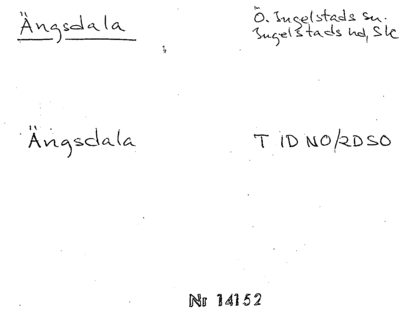 Ängsdala
Ö. Ingelstads sn.
Ingelstads hd, Sk
Ängsdala
T 1D NO/2D SO
Nr 14152